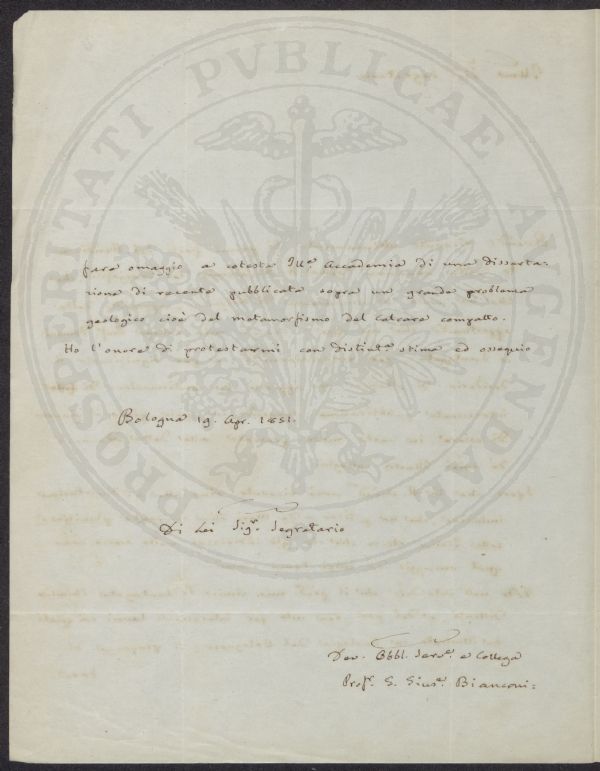 PROSPERITATI PVBLICAE AVGENDAE
fare omaggio a cotesta Ill.ª Accademia di una disserta-
zione di recente pubblicata sopra un grande problema
geologico cioè del metamorfismo del calcare compatto.
Ho l'onore di protestarmi con distint.ª stima ed ossequio
Bologna 19. Apr. 1851.
Di Lei Sig.ʳ Segretario
Dev. Obbl. Serv.ᵉ e Collega
Prof.ʳ G. Gius.ᵉ Bianconi=